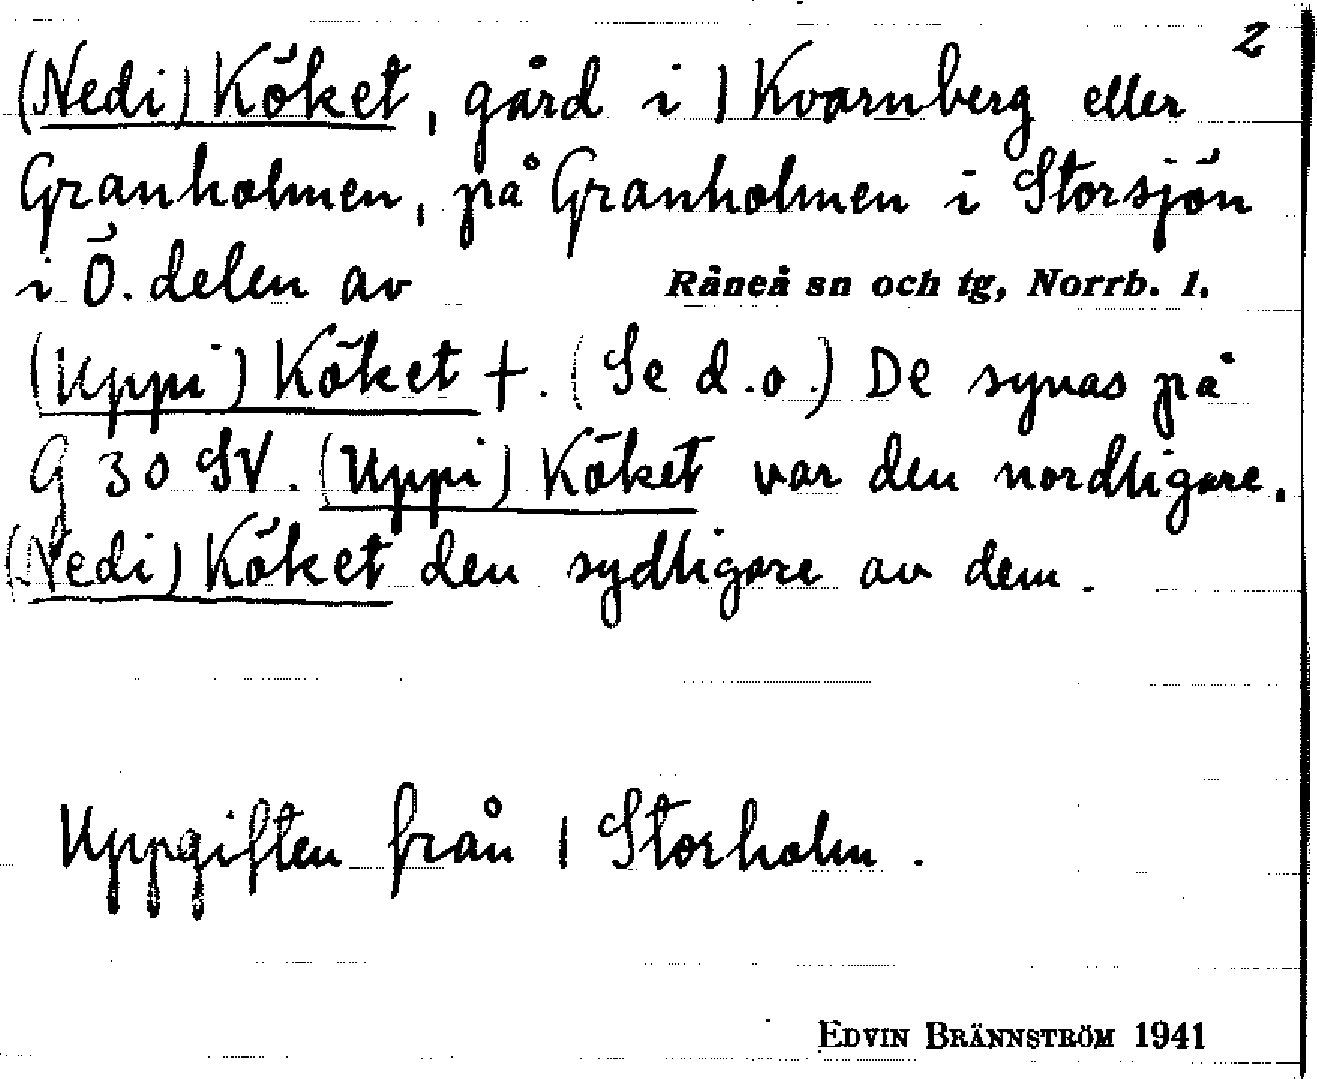 2
(Nedi) Köket, gård i | Kvarnberg eller
Granholmen, på Granholmen i Storsjön
i Ö. delen av Råneå sn och tg, Norrb. l.
(Uppi) Köket †. (Se d.o.) De synas på
G 30 SV. (Uppi) Köket var den nordligare.
(Nedi) Köket den sydligare av dem.
Uppgiften från | Storholm.
EDVIN BRÄNNSTRÖM 1941